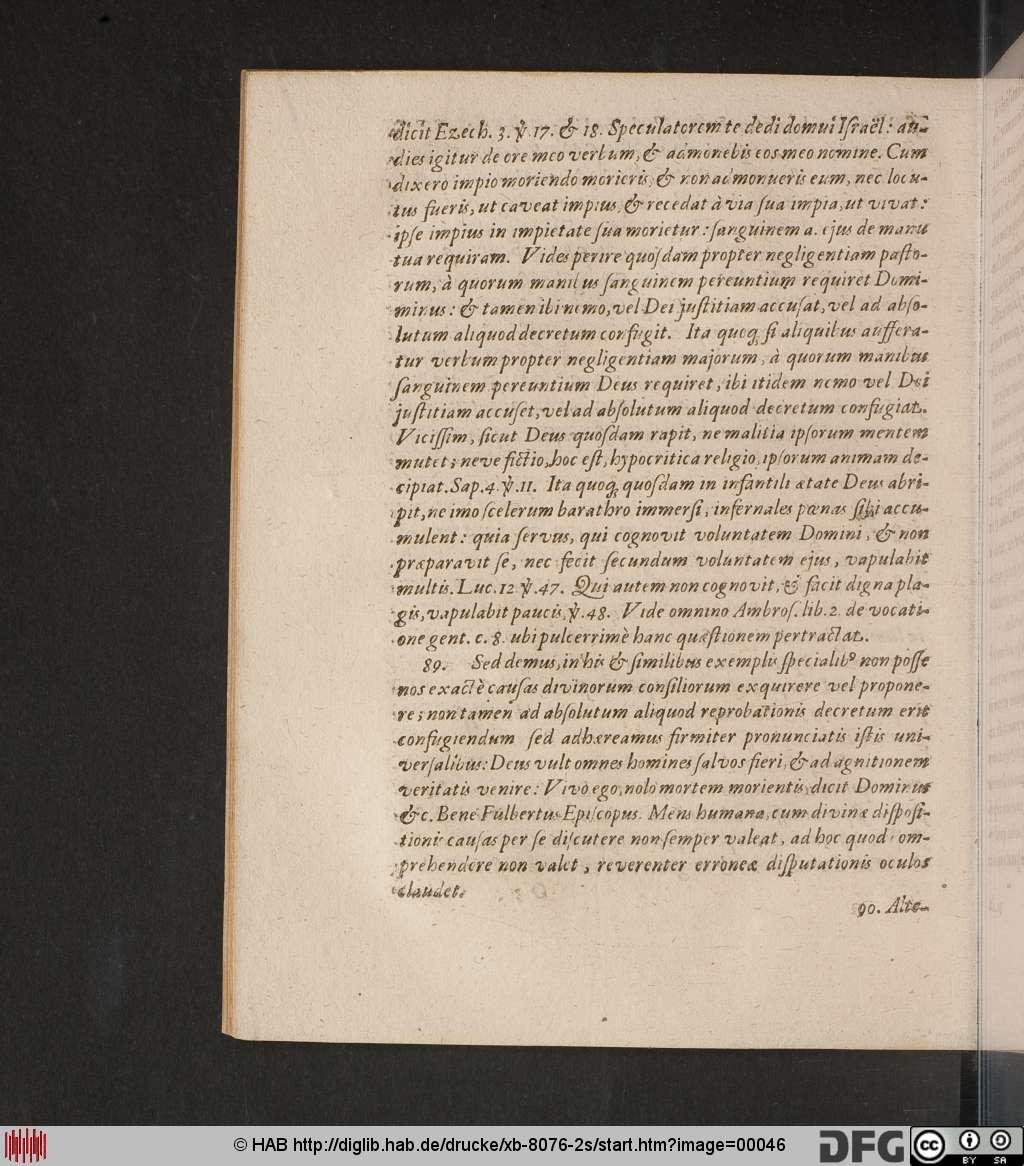 dicit Ezech. 3. ℣. 17. & 18. Speculatorem te dedi domui Iſraël: au-
dies igitur de ore meo verbum, & admonebis eos meo nomine. Cum
dixero impio moriendo morieris, & non admonueris eum, nec locu-
tus fueris, ut caveat impius, & recedat à via ſua impia, ut vivat:
ipſe impius in impietate ſua morietur: ſanguinem a. ejus de manu
tua requiram. Vides perire quoſdam propter negligentiam paſto-
rum, à quorum manibus ſanguinem pereuntium requiret Domi-
minus: & tamen ibi nemo, vel Dei juſtitiam accuſat, vel ad abſo-
lutum aliquod decretum confugit. Ita quoq; ſi aliquibus auffera-
tur verbum propter negligentiam majorum, à quorum manibus
ſanguinem pereuntium Deus requiret, ibi itidem nemo vel Dei
juſtitiam accuſet, vel ad abſolutum aliquod decretum confugiat.
Viciſſim, ſicut Deus quoſdam rapit, ne malitia ipſorum mentem
mutet; neve fictio, hoc eſt, hypocritica religio, ipſorum animam de-
cipiat. Sap. 4. ℣. 11. Ita quoq; quoſdam in infantili ætate Deus abri-
pit, ne imo ſcelerum barathro immerſi, infernales pœnas ſibi accu-
mulent: quia ſervus, qui cognovit voluntatem Domini, & non
præparavit ſe, nec fecit ſecundum voluntatem ejus, vapulabit
multis. Luc. 12 ℣. 47. Qui autem non cognovit, & facit digna pla-
gis, vapulabit paucis, ℣. 48. Vide omnino Ambroſ. lib. 2. de vocati-
one gent. c. 8. ubi pulcerrimè hanc quæſtionem pertractat.
89. Sed demus, in his & ſimilibus exemplis ſpecialib⁹ non poſſe
nos exactè cauſas divinorum conſiliorum exquirere vel propone-
re; non tamen ad abſolutum aliquod reprobationis decretum erit
confugiendum ſed adhæreamus firmiter pronunciatis iſtis uni-
verſalibus: Deus vult omnes homines ſalvos fieri, & ad agnitionem
veritatis venire: Vivo ego, nolo mortem morientis, dicit Dominus
&c. Benè Fulbertus Epiſcopus. Mens humana, cum divinæ diſpoſi-
tionis cauſas per ſe diſcutere non ſemper valeat, ad hoc quod com-
prehendere non valet, reverenter erroneæ diſputationis oculos
claudet.
90. Alte-
© HAB http://diglib.hab.de/drucke/xb-8076-2s/start.htm?image=00046
DFG
cc
BY SA